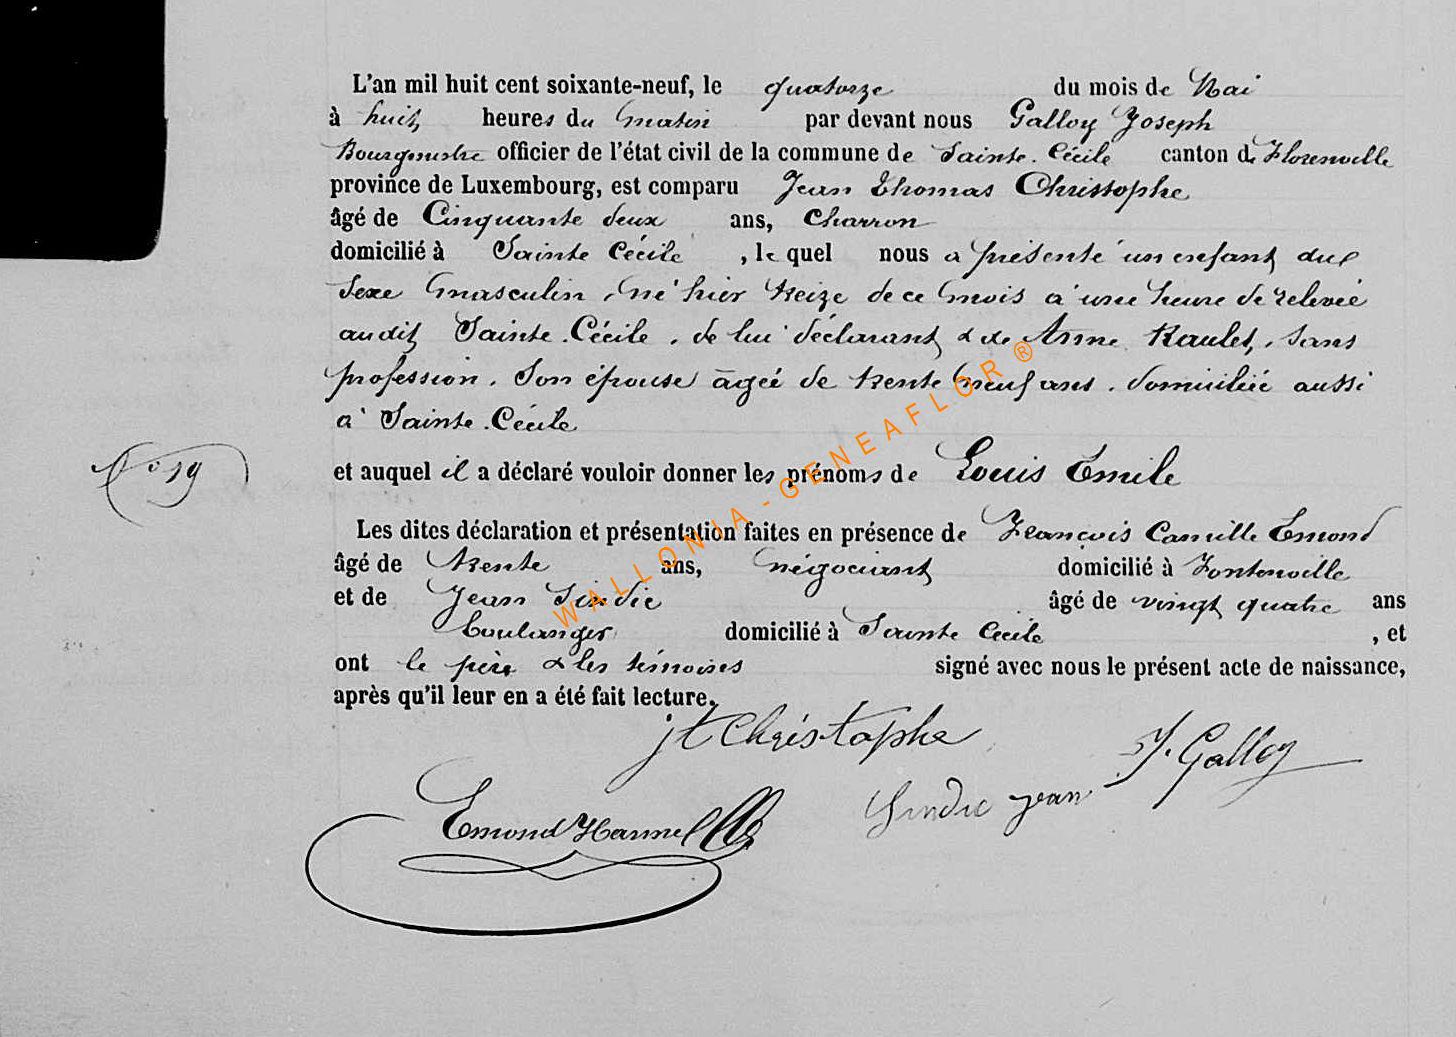 L'an mil huit cent soixante-neuf, le quatorze du mois de Mai
à huit heures du matin par devant nous Galloy Joseph
Bourgmestre officier de l'état civil de la commune de Sainte-Cécile canton de Florenville
province de Luxembourg, est comparu Jean Thomas Christophe
âgé de Cinquante deux ans, Charron
domicilié à Sainte Cécile, le quel nous a présenté un enfant du
sexe masculin, né hier treize de ce mois à une heure de relevée
audit Sainte-Cécile, de lui déclarant & de Anne Raulet, sans
profession, son épouse âgée de trente neuf ans, domiciliée aussi
à Sainte-Cécile
N° 19
et auquel il a déclaré vouloir donner les prénoms de Louis Emile
Les dites déclaration et présentation faites en présence de François Camille Emond
âgé de trente ans, négociant domicilié à Fontenoille
et de Jean Sindic âgé de vingt quatre ans
boulanger domicilié à Sainte Cécile, et
ont le père & les témoins signé avec nous le présent acte de naissance,
après qu'il leur en a été fait lecture.
jt Christophe
J. Galloy
Emond
Sindic jean
WALLONIA-GENEAFLOR®